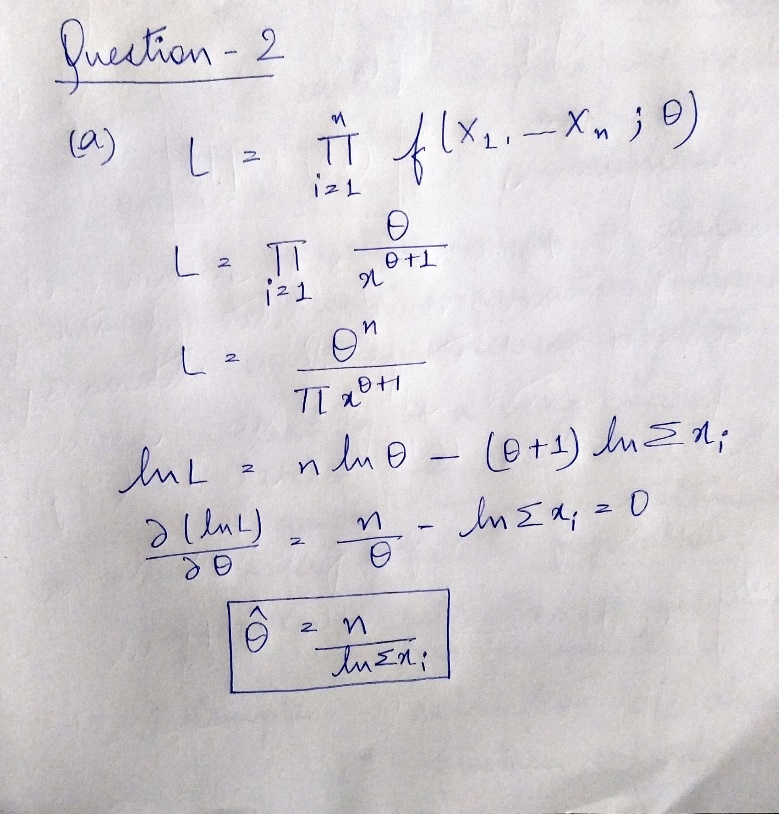 Question - 2
(a) L = ∏_{i=1}^{n} f(X₁, — Xₙ ; θ)
L = ∏_{i=1} θ / x^{θ+1}
L = θⁿ / ∏ x^{θ+1}
ln L = n ln θ – (θ+1) ln Σ xᵢ
∂(ln L) / ∂θ = n / θ - ln Σ xᵢ = 0
θ̂ = n / ln Σ xᵢ